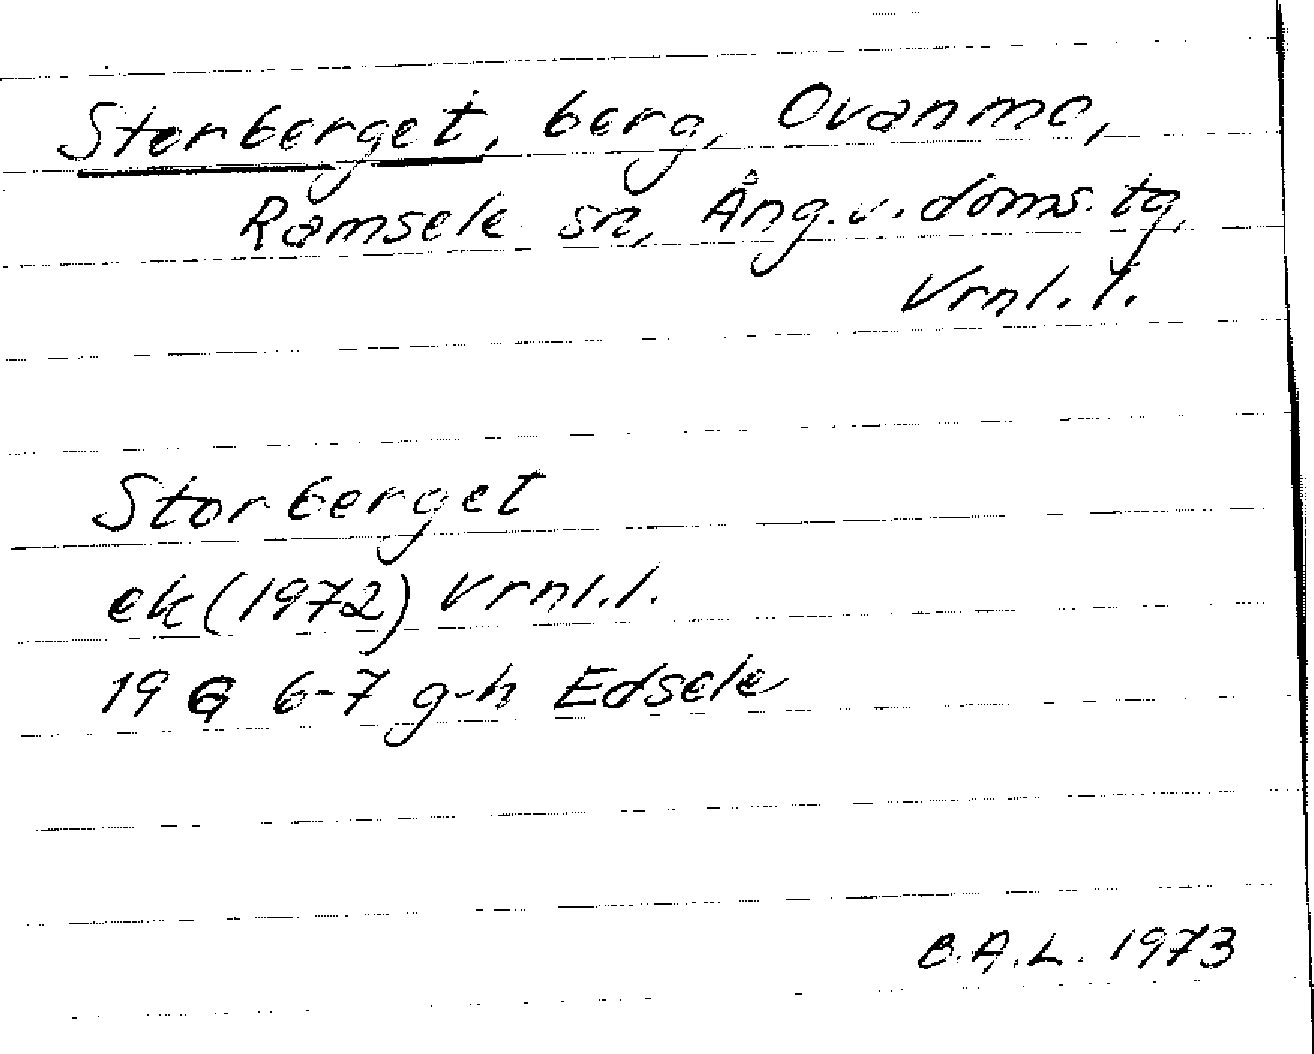 Storberget, berg, Ovanmo,
Ramsele sn, Ång.v.doms.tg,
Vrnl.l.
Storberget
ek (1972) Vrnl.l.
19 G 6-7 g-h Edsele
B.A.L. 1973